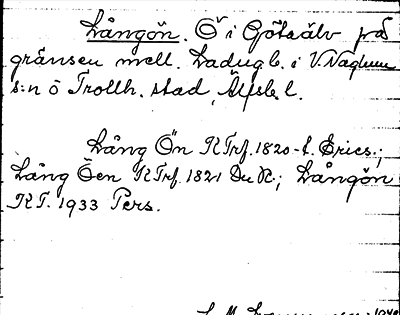 Långön. Ö i Götaälv på
gränsen mell. Ladugb. i V. Naglum
s:n o Trollh. stad, Älfsb. l.
Lång Ön KTrf. 1820-t. Erics.;
Lång Öen KTrf. 1821 Du R.; Långön
KT. 1933 Pers.